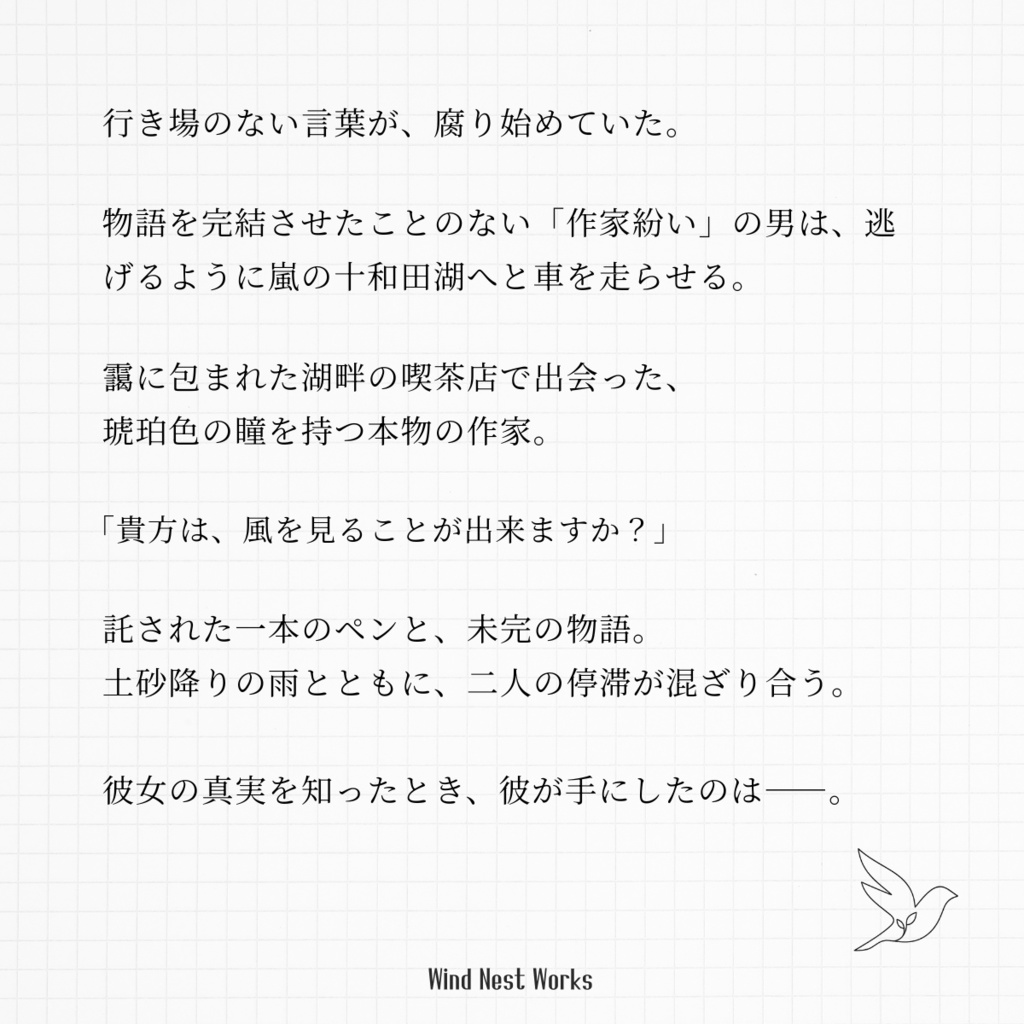 行き場のない言葉が、腐り始めていた。
物語を完結させたことのない「作家紛い」の男は、逃
げるように嵐の十和田湖へと車を走らせる。
靄に包まれた湖畔の喫茶店で出会った、
琥珀色の瞳を持つ本物の作家。
「貴方は、風を見ることが出来ますか？」
託された一本のペンと、未完の物語。
土砂降りの雨とともに、二人の停滞が混ざり合う。
彼女の真実を知ったとき、彼が手にしたのは――。
Wind Nest Works